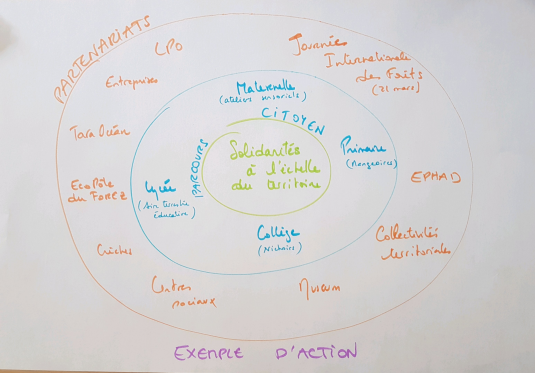 PARTENARIATS
LPO
Journée
Internationale
des Forêts
(21 mars)
Entreprises
Tara Océan
EcoPôle
du FOREZ
Crèches
Centres
sociaux
Museum
Collectivités
territoriales
EPHAD
PARCOURS
CITOYEN
Maternelle
(ateliers sensoriels)
Primaire
(Mangeoires)
Collège
(Nichoirs)
Lycée
(Aire Terrestre
Educative)
Solidarités
à l'échelle
du territoire
EXEMPLE D'ACTION